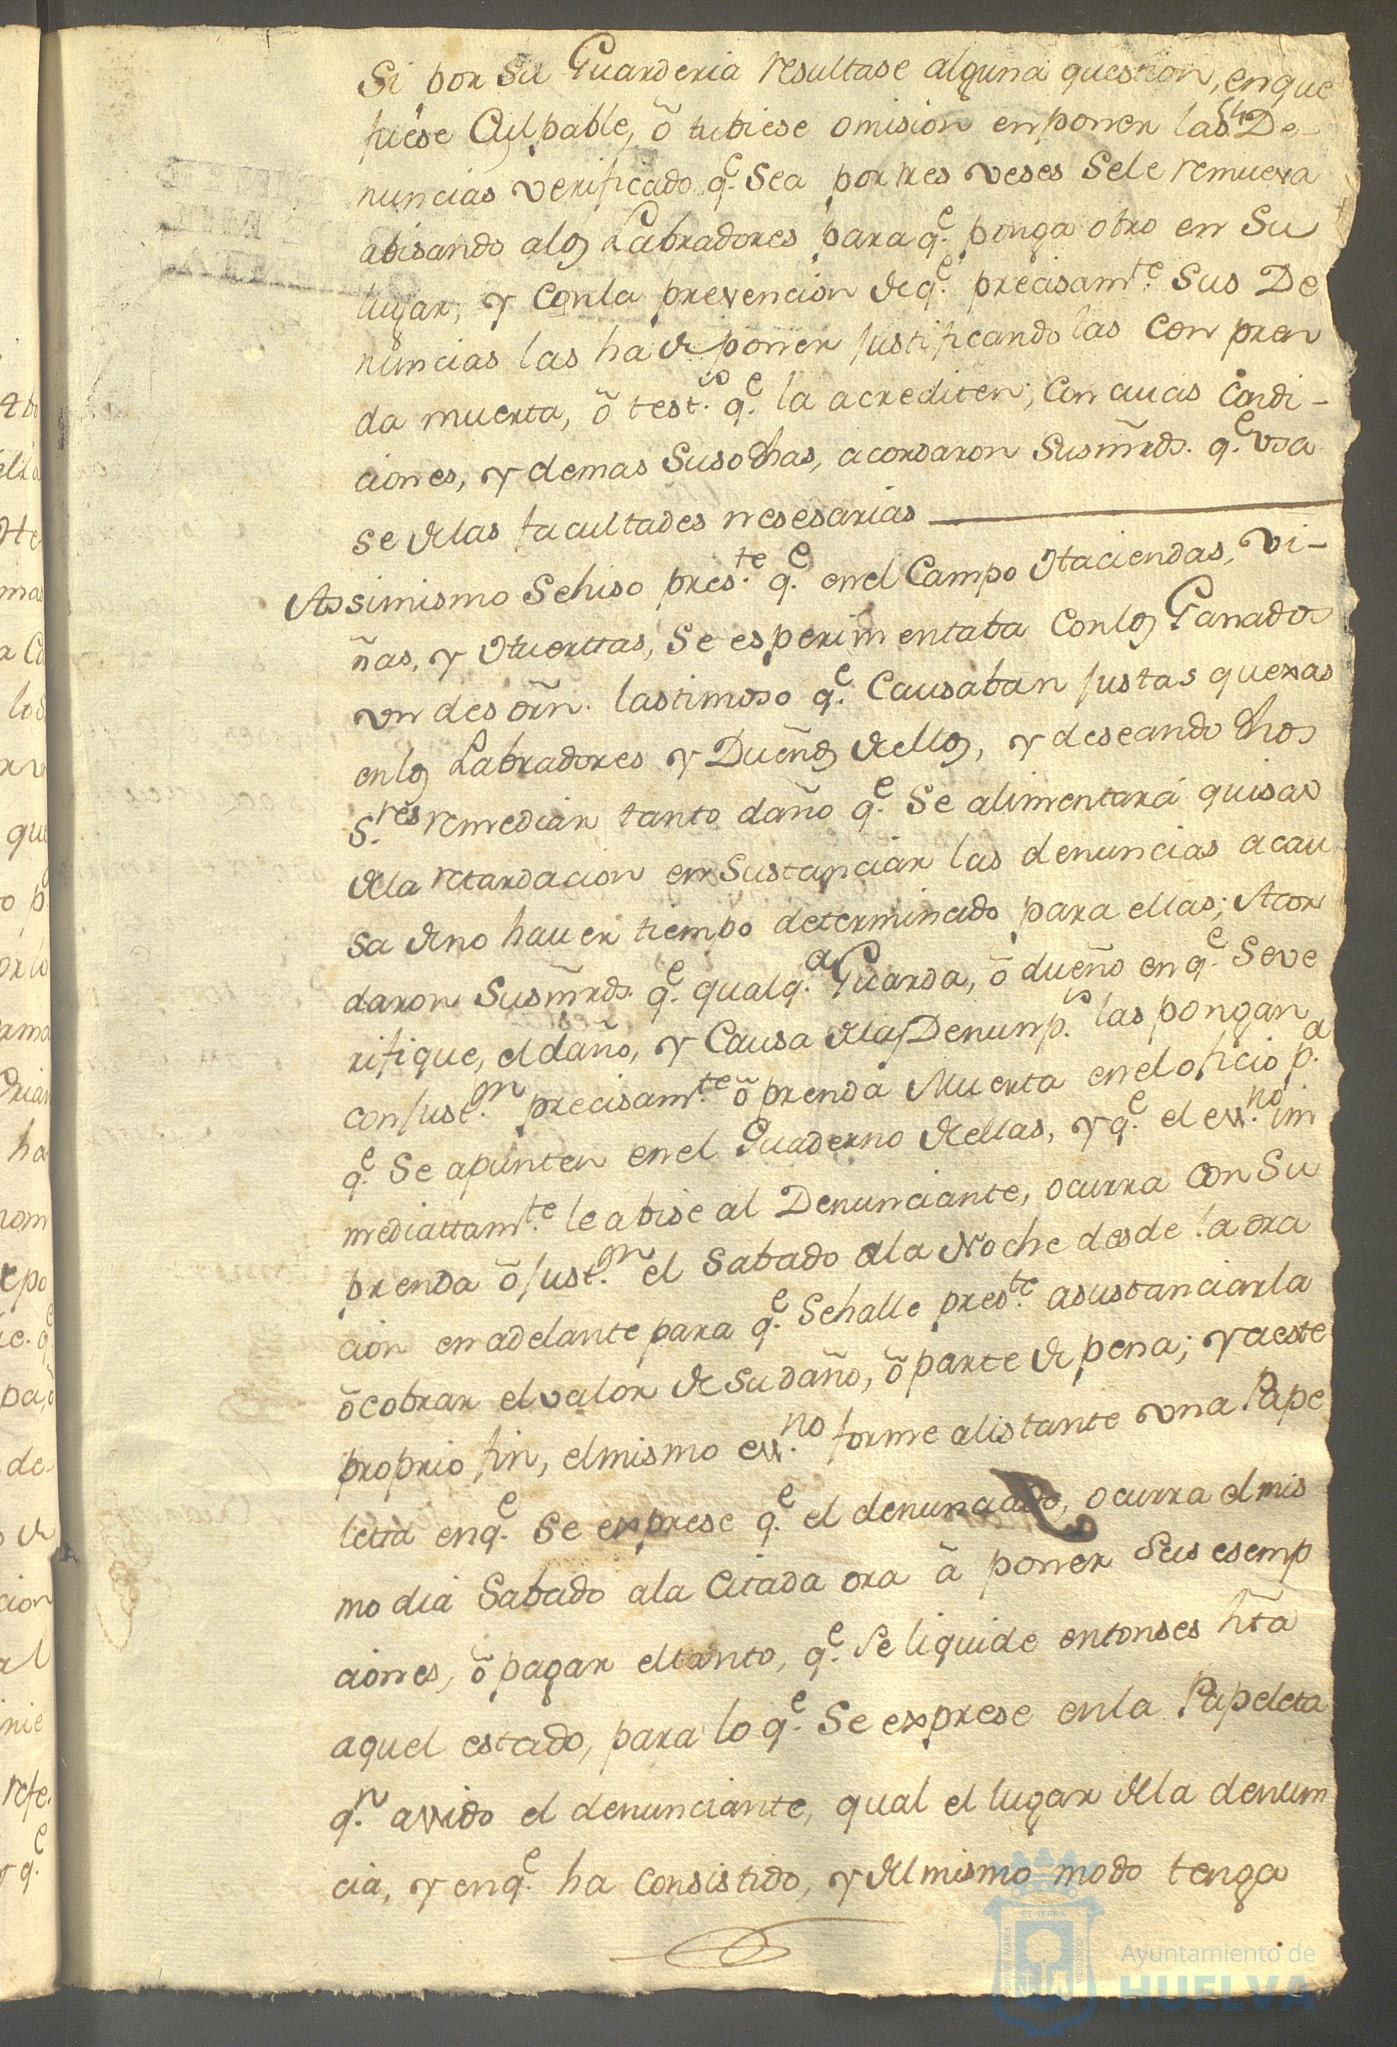 Si por su Guarderia resultase alguna question, en que
fuese Culpable, õ tubiese omision en poner las De-
nuncias verificado q.e sea por tres veses sele remueva
abisando a los Labradores para q.e ponga otro en su
lugar, y con la prevencion de q.e precisam.te sus De
nuncias las ha de poner justificandolas con pren
da muerta, õ test.os q.e la acrediten; con cuias condi-
ciones, y demas susodhas, acordaron sus mrds. q.e usa
se de las facultades nesesarias
Assimismo se hiso pres.te q.e en el Campo Haciendas, vi-
ñas, y Huerttas, se esperimentaba con los Ganados
un desorñ. lastimoso q.e Causaban justas quexas
en los Labradores y Dueños de ellos, y deseando dhos
S.res remediar tanto daño q.e se alimentará quisas
de la retardacion en sustanciar las denuncias a cau
sa de no haver tiempo determinado para ellas; Acor
daron sus mrds. q.e qualq.a Guarda, õ dueño en q.e se ve
rifique, el daño, y Causa de las Denunp.s las pongan
con just.on precisam.te õ prenda Muerta en el oficio p.a
q.e se apunten en el Quaderno de ellas, y q.e el ess.no in
mediattam.te le abise al Denunciante, ocurra con su
prenda õ just.on el Sabado a la Noche desde la ora
cion en adelante para q.e se halle pres.te a sustanciarla
õ cobrar el valor de su daño, õ parte de pena; y a este
proprio fin, el mismo ess.no forme al istante una Pape
leta en q.e se exprese q.e el denunciado, ocurra el mis
mo dia Sabado a la Citada ora ã poner sus esemp
ciones, õ pagar el tanto, q.e se liquide entonses hta
aquel estado, para lo q.e se exprese en la Papeleta
q.n avido el denunciante, qual el lugar de la denun
cia, y en q.e ha consistido, y del mismo modo tenga
Ayuntamiento de
HUELVA